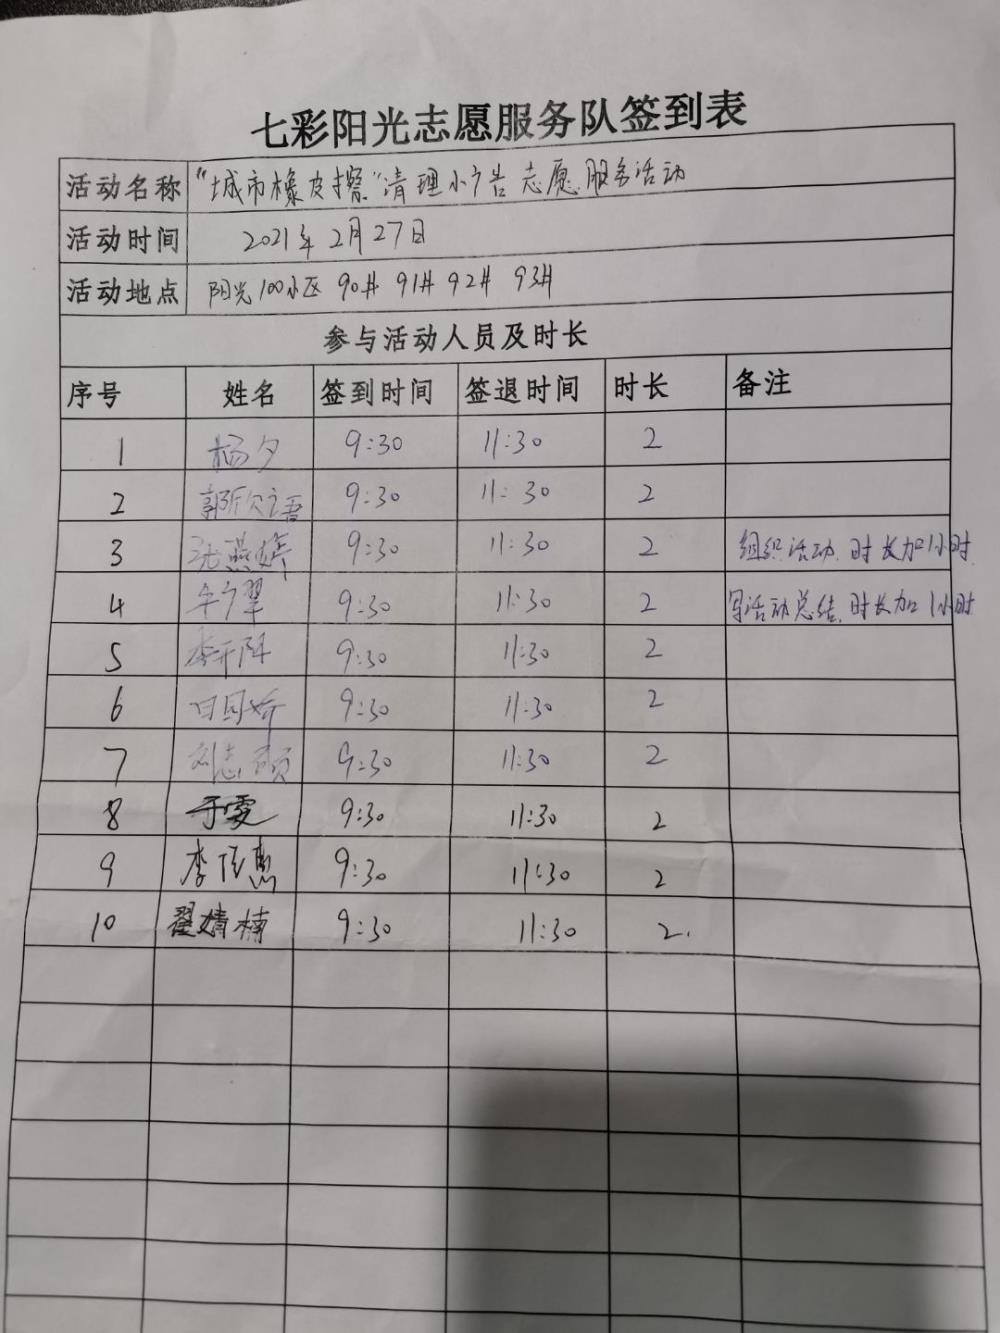 七彩阳光志愿服务队签到表
活动名称 "城市橡皮擦"清理小广告志愿服务活动
活动时间 2021年2月27日
活动地点 阳光100小区 90# 91# 92# 93#
参与活动人员及时长
序号 姓名 签到时间 签退时间 时长 备注
1 杨夕 9:30 11:30 2
2 郭欣语 9:30 11:30 2
3 9:30 11:30 2 组织活动.时长加1小时
4 9:30 11:30 2 写活动总结.时长加1小时
5 李开阳 9:30 11:30 2
6 9:30 11:30 2
7 刘志硕 9:30 11:30 2
8 于雯 9:30 11:30 2
9 9:30 11:30 2
10 翟婧楠 9:30 11:30 2.